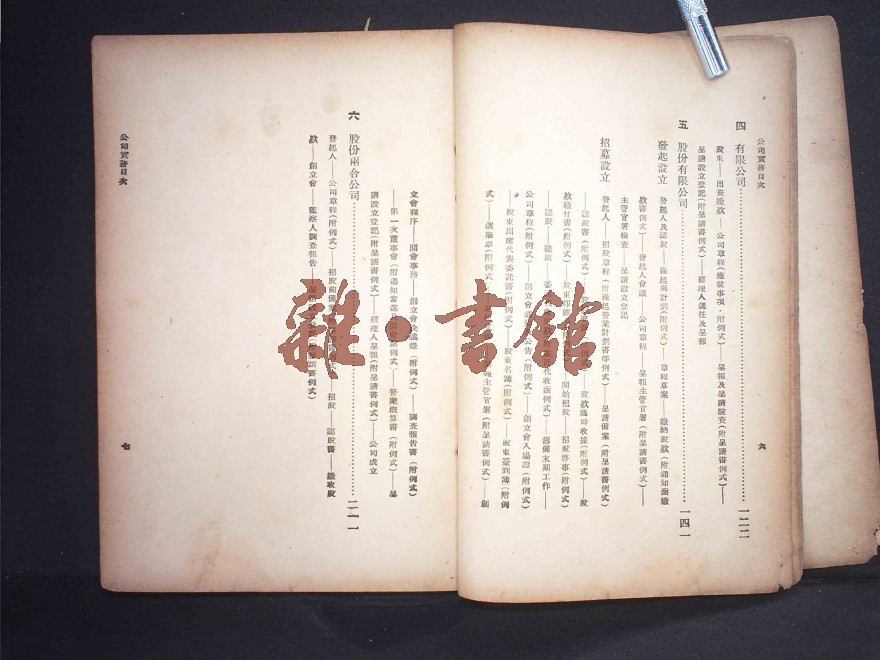 公司實務目次
六
四 有限公司……一二二
股東——出資繳款——公司章程(應載事項·附例式)——呈報及呈請驗查(附呈請書例式)——
呈請設立登記(附呈請書例式)——經理人選任及呈報
五 股份有限公司……一四一
發起設立 發起人及認股——緣起與計劃(附例式)——章程草案——繳納股款(附通知函繳
款書例式)——發起人會議——公司章程——呈報主管官署(附呈請書例式)——
主管官署檢查——呈請設立登記
招募設立 發起人——招股章程(附緣起營業計劃書等例式)——呈請備案(附呈請書例式)
——認股書(附例式)——股款臨時收據(附例式)——股
款繳付書(附例式)——股東印鑑——開始招股——招股啓事(附例式)
——認股——繳股——代收函例式)——籌備末期工作——
公司章程(附例式)——創立會公告(附例式)——創立會入場證(附例式)
——股東出席代表委託書(附例式)——股東名簿(附例式)——股東簽到簿(附例
式)——選舉票(附例式)——主管官署(附呈請書例式)——創
立會程序——開會事務——創立會決議錄(附例式)——調查報告書(附例式)
——第一次董事會(附通知當選例式)——營業概算書(附例式)——呈
請設立登記(附呈請書例式)——經理人呈報(附呈請書例式)——公司成立
六 股份兩合公司……二一一
發起人——公司章程(附例式)——招股前備案——招股——認股書——繳收股
款——創立會——監察人調查報告——呈請書例式)
公司實務目次
七
雜·書館